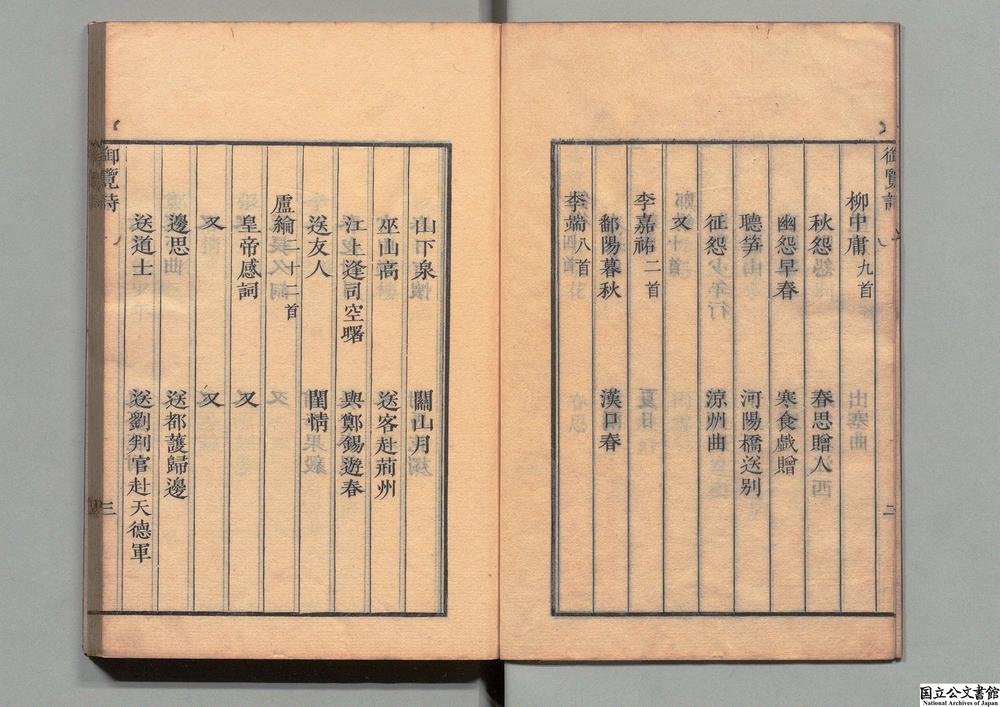 御覽詩
二
柳中庸九首
秋怨 春思贈人
幽怨早春 寒食戲贈
聽箏 河陽橋送別
征怨 涼州曲
又
李嘉祐二首
鄱陽暮秋 漢口春
李端八首
山下泉 關山月
巫山高 送客赴荊州
江上逢司空曙 與鄭錫遊春
送友人 閨情
盧綸二十二首
皇帝感詞 又
又 又
邊思 送都護歸邊
送道士 送劉判官赴天德軍
御覽詩
三
国立公文書館
National Archives of Japan